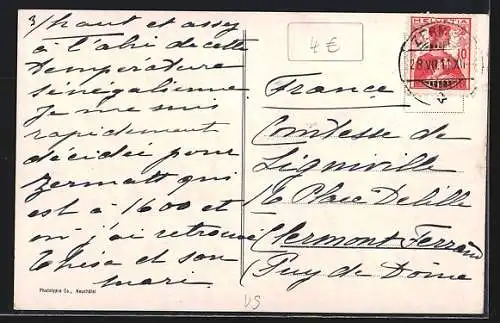 3/ haut et assez
à l'abri de cette
température
sénégalienne
Je me suis
rapidement
décidée pour
Zermatt qui
est à 1600 et
où j'ai retrouvé
et son
mari
Phototypie Co., Neuchâtel
4 €
HELVETIA
10
ZERM
28.VII.11.XII
France
Comtesse de
Ligniville
16 Place Delille
Clermont Ferrand
Puy de Dôme
VS